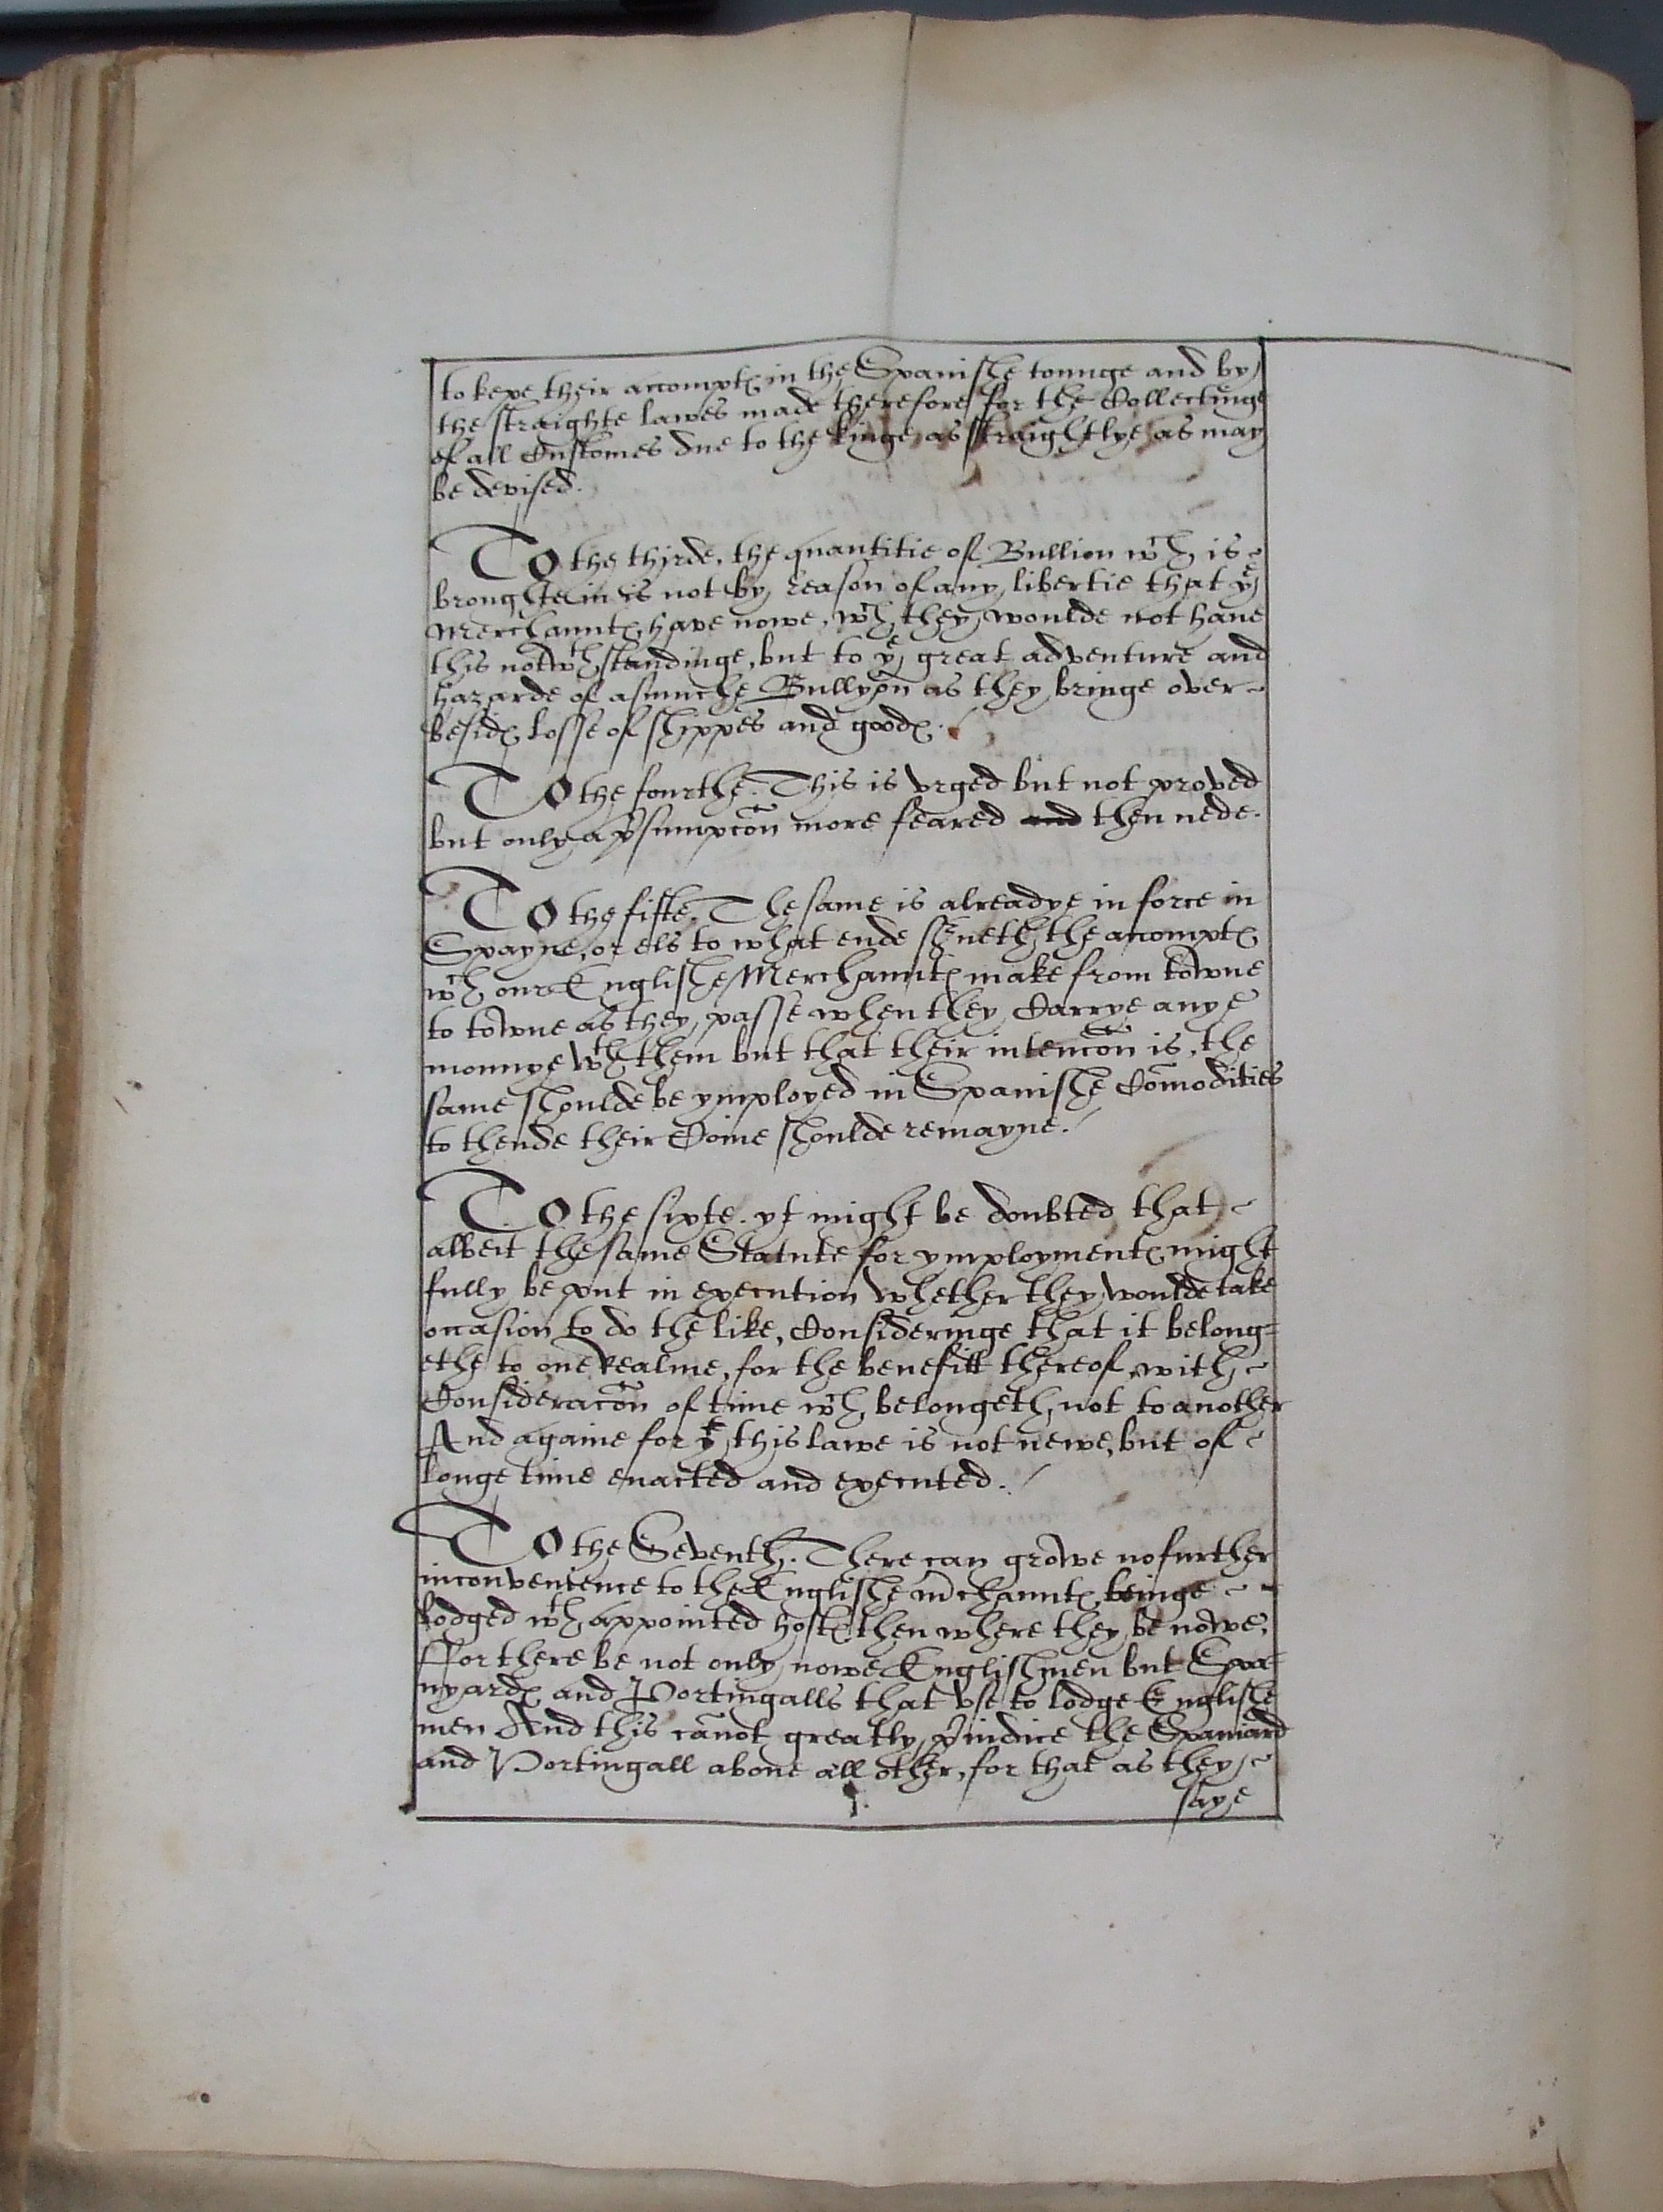 to kepe their accomptes in the Spanishe tounge and by
the straighte lawes made therefore for the Collectinge
of all Customes due to the kinge as straightlye as may
be devised.
To the thirde, the quantitie of Bullion wch is
broughte in is not by reason of any libertie that ye
Merchauntes have nowe, wch they woulde not have
this notwthstandinge, but to ye great adventure and
hazarde of asmuche Bullyon as they bringe over
besides losse of shippes and goodes.
To the fourthe. This is vrged but not proved
but only a psumpcon more feared and then nede.
To the fifte. The same is alreadye in force in
Spayne, or els to what ende sneth the accomptes
wch our Englishe Merchauntes make from towne
to towne as they passe when they Carrye anye
monnye wth them but that their intencon is, the
same shoulde be ymployed in Spanishe Comodities
to thende their Coine shoulde remayne.
To the sixte. yt might be doubted that
albeit the same Statute for ymploymentes might
fully be put in execution whether they woulde take
occasion to do the like, Consideringe that it belong=
ethe to one realme, for the benefitt thereof with
Consideracon of time wch belongeth not to another
And againe for yt this lawe is not newe, but of
longe time enacted and executed.
To the Seventh. There can growe no further
inconvenience to the Englishe mchauntes beinge
lodged wth appointed hostes then where they be nowe,
For there be not only nowe Englishmen but Spa=
nyardes and Portingalls that vse to lodge Englishe
men And this canot greatly piudice the Spaniard
and Portingall aboue all other, for that as they
saye